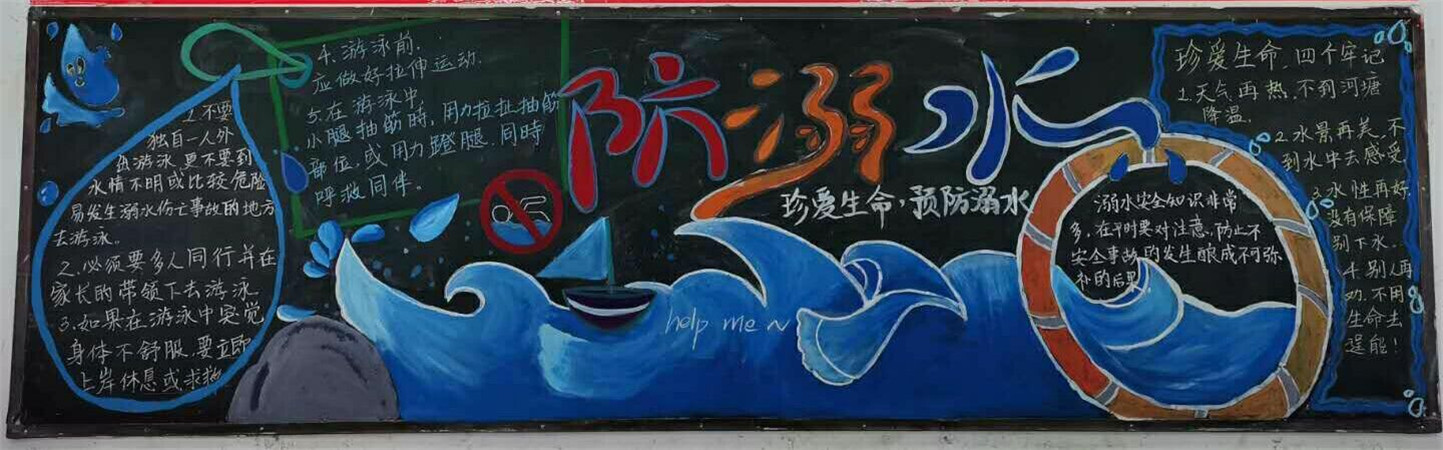 防溺水
珍爱生命，预防溺水
1.不要
独自一人外
出游泳,更不要到
水情不明或比较危险
易发生溺水伤亡事故的地方
去游泳。
2.必须要多人同行并在
家长的带领下去游泳
3.如果在游泳中突觉
身体不舒服,要立即
上岸休息或求救
4.游泳前,
应做好拉伸运动.
5.在游泳中,
小腿抽筋时,用力拉扯抽筋
部位,或用力蹬腿,同時
呼救同伴。
help me~
溺水安全知识非常
多,在平时要对注意,防止不
安全事故的发生酿成不可弥
补的后果.
珍爱生命,四个牢记
1.天气再热,不到河塘
降温,
2.水景再美,不
到水中去感受.
3.水性再好,
没有保障
别下水..
4.别人再
劝,不用
生命去
逞能!